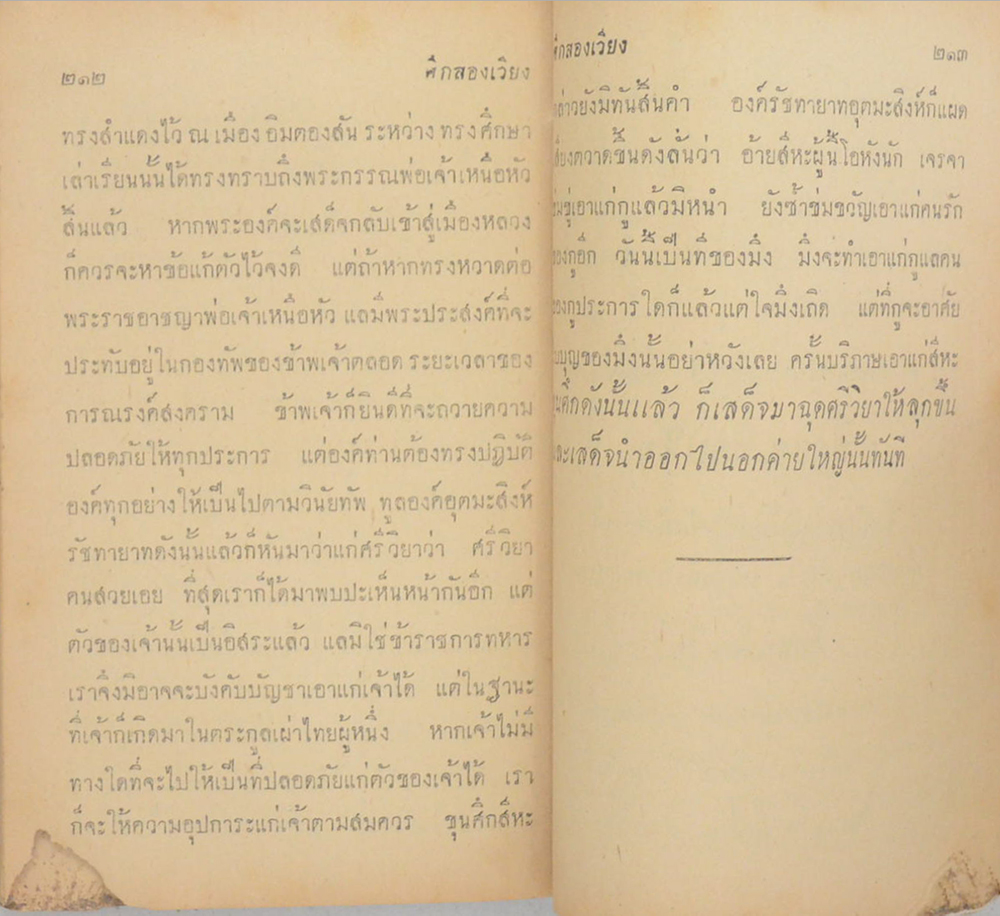 ๒๑๒ ศึกสองเวียง
ทรงสำแดงไว้ ณ เมือง อิมตองสัน ระหว่าง ทรงศึกษา
เล่าเรียนนั้นได้ทรงทราบถึงพระกรรณพ่อเจ้าเหนือหัว
สิ้นแล้ว หากพระองค์จะเสด็จกลับเข้าสู่เมืองหลวง
ก็ควรจะหาข้อแก้ตัวไว้จงดี แต่ถ้าหากทรงหวาดต่อ
พระราชอาชญาพ่อเจ้าเหนือหัว แลมีพระประสงค์ที่จะ
ประทับอยู่ในกองทัพของข้าพเจ้าตลอด ระยะเวลาของ
การณรงค์สงคราม ข้าพเจ้าก็ยินดีที่จะถวายความ
ปลอดภัยให้ทุกประการ แต่องค์ท่านต้องทรงปฏิบัติ
องค์ทุกอย่างให้เป็นไปตามวินัยทัพ ทูลองค์อุตมะสิงห์
รัชทายาทดังนั้นแล้วก็หันมาว่าแก่ศรีวิยาว่า ศรีวิยา
คนสวยเอย ที่สุดเราก็ได้มาพบปะเห็นหน้ากันอีก แต่
ตัวของเจ้านั้นเป็นอิสระแล้ว แลมิใช่ข้าราชการทหาร
เราจึงมิอาจจะบังคับบัญชาเอาแก่เจ้าได้ แต่ในฐานะ
ที่เจ้าก็เกิดมาในตระกูลเผ่าไทยผู้หนึ่ง หากเจ้าไม่มี
ทางใดที่จะไปให้เป็นที่ปลอดภัยแก่ตัวของเจ้าได้ เรา
ก็จะให้ความอุปการะแก่เจ้าตามสมควร ขุนศึกสีหะ
ศึกสองเวียง ๒๑๓
กล่าวยังมิทันสิ้นคำ องค์รัชทายาทอุตมะสิงห์ก็แผด
เสียงตวาดขึ้นดังลั่นว่า อ้ายสีหะผู้นี้โอหังนัก เจรจา
ข่มขู่เอาแก่กูแล้วมิหนำ ยังซ้ำข่มขวัญเอาแก่คนรัก
ของกูอีก วันนี้เป็นทีของมึง มึงจะทำเอาแก่กูแลคน
ของกูประการใดก็แล้วแต่ใจมึงเถิด แต่ที่กูจะอาศัย
บุญของมึงนั้นอย่าหวังเลย ครั้นบริภาษเอาแก่สีหะ
ขุนศึกดังนั้นแล้ว ก็เสด็จมาฉุดศรีวิยาให้ลุกขึ้น
และเสด็จนำออกไปนอกค่ายใหญ่นั้นทันที